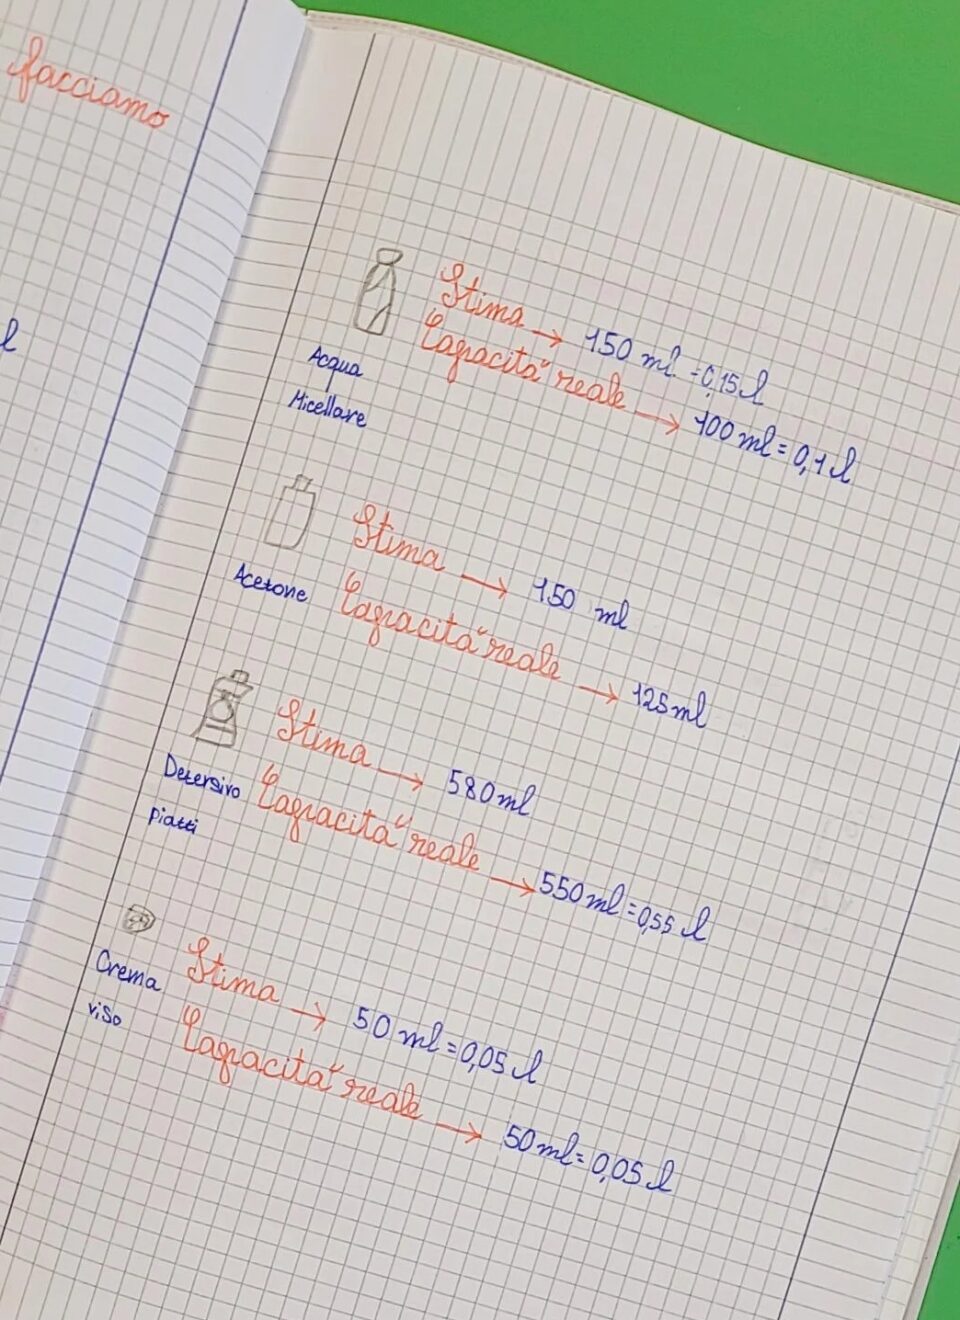 facciamo
l
Stima → 150 ml = 0,15 l
Capacità reale → 100 ml = 0,1 l
Acqua
Micellare
Stima → 150 ml
Capacità reale → 125 ml
Acetone
Stima → 580 ml
Capacità reale → 550 ml = 0,55 l
Detersivo
piatti
Stima → 50 ml = 0,05 l
Capacità reale → 50 ml = 0,05 l
Crema
viso